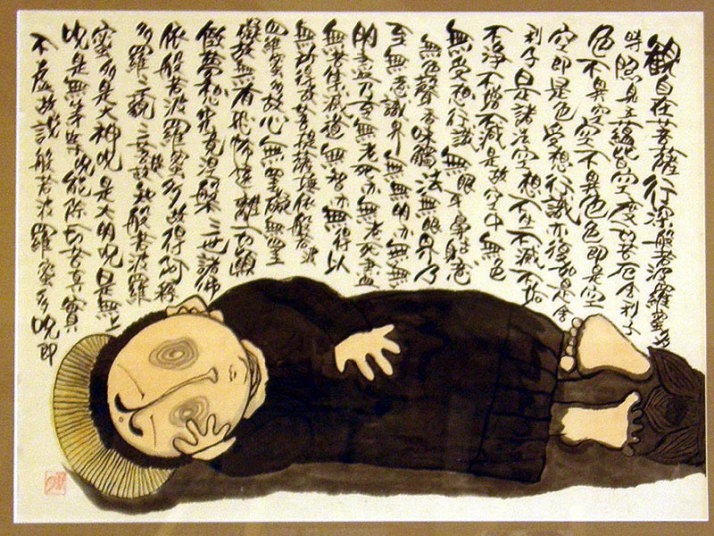 観自在菩薩行深般若波羅蜜多
時照見五蘊皆空度一切苦厄舎利子
色不異空空不異色色即是空
空即是色受想行識亦復如是舎
利子是諸法空想不生不滅不垢
不浄不増不減是故空中無色
無受想行識無眼耳鼻舌身意
無色聲香味觸法無眼界乃
至無意識界無無明亦無無
明盡乃至無老死亦無老死盡
無苦集滅道無智亦無得以
無所得故菩提薩埵依般若波
羅蜜多故心無罣礙無罣
礙故無有恐怖遠離一切顛
倒夢想究竟涅槃三世諸佛
依般若波羅蜜多故得阿耨
多羅三藐三菩提故知般若波羅
蜜多是大神呪是大明呪是無上
呪是無等等呪能除一切苦真實
不虚故説般若波羅蜜多呪即